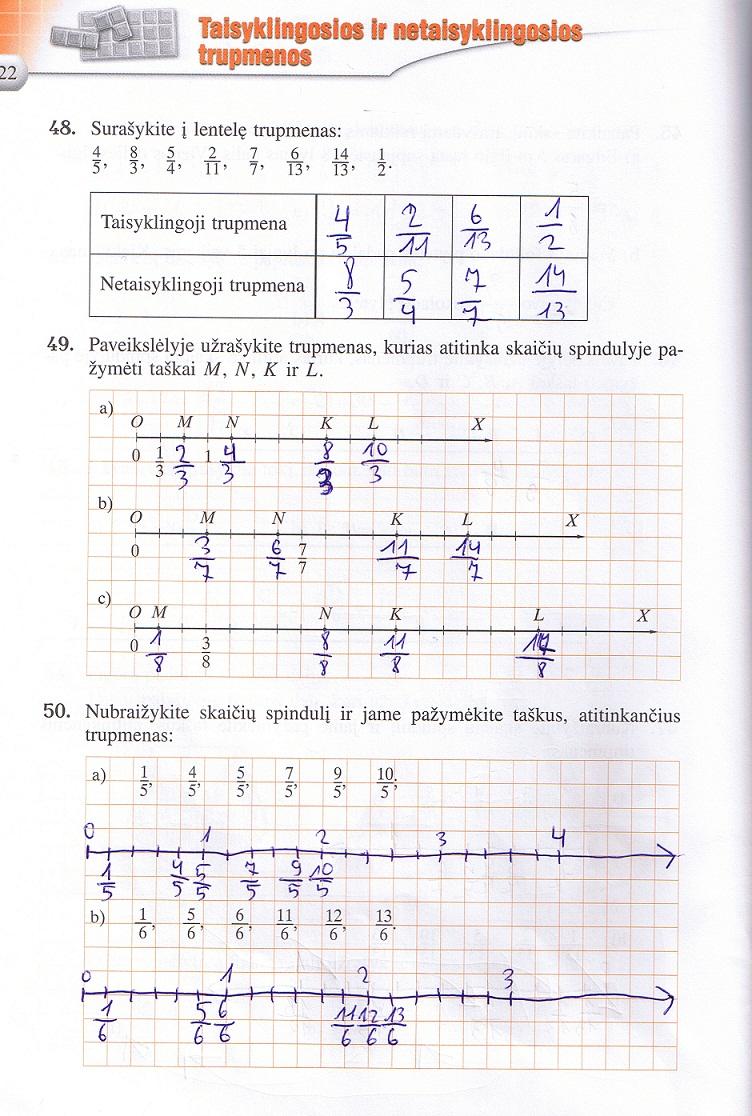 Taisyklingosios ir netaisyklingosios
trupmenos
22
48. Surašykite į lentelę trupmenas:
4/5, 8/3, 5/4, 2/11, 7/7, 6/13, 14/13, 1/2.
Taisyklingoji trupmena 4/5 2/11 6/13 1/2
Netaisyklingoji trupmena 8/3 5/4 7/7 14/13
49. Paveikslėlyje užrašykite trupmenas, kurias atitinka skaičių spindulyje pa-
žymėti taškai M, N, K ir L.
a)
O M N K L X
0 1/3 2/3 1 4/3 8/3 10/3
b)
O M N K L X
0 3/7 6/7 7/7 11/7 14/7
c)
O M N K L X
0 1/8 3/8 8/8 11/8 17/8
50. Nubraižykite skaičių spindulį ir jame pažymėkite taškus, atitinkančius
trupmenas:
a) 1/5, 4/5, 5/5, 7/5, 9/5, 10/5;
0 1 2 3 4
1/5 4/5 5/5 7/5 9/5 10/5
b) 1/6, 5/6, 6/6, 11/6, 12/6, 13/6.
0 1 2 3
1/6 5/6 6/6 11/6 12/6 13/6